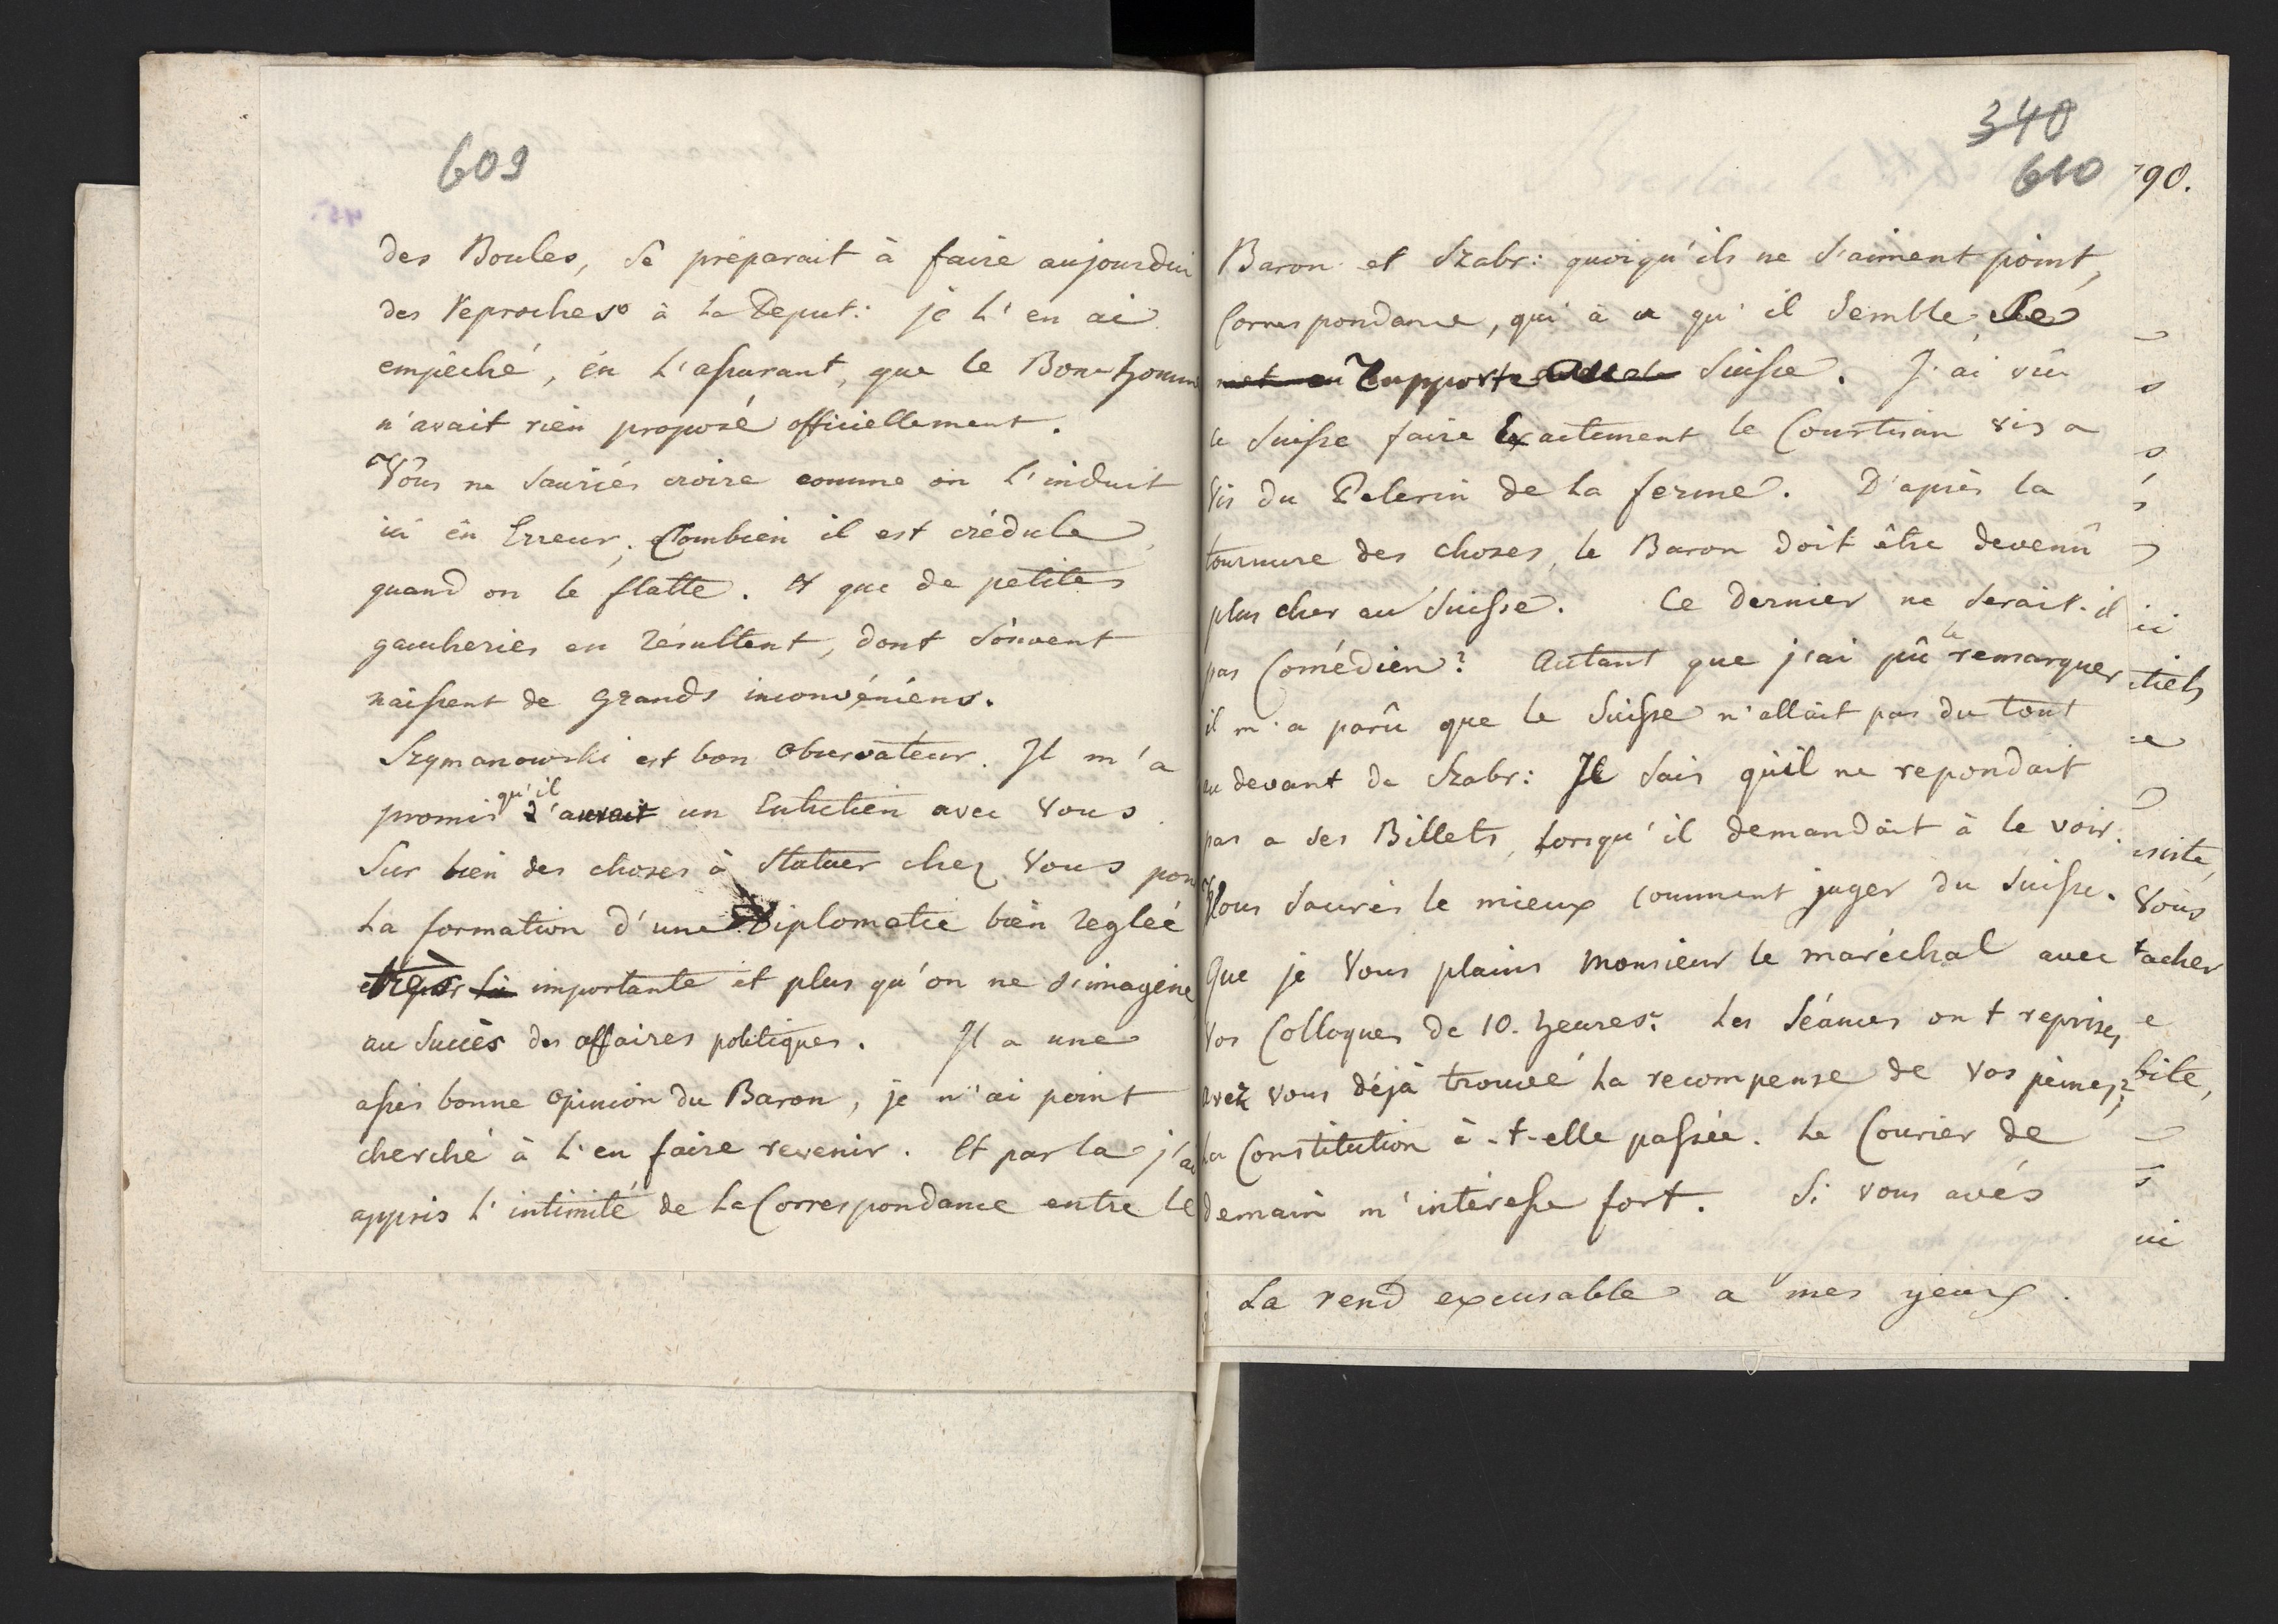 609
des Boules, se préparait à faire aujourdui
des reproches à la Deput: je l'en ai
empêché, en l'assurant, que le Bon-homme
n'avait rien proposé officiellement.
Vous ne sauriés croire comme on l'induit
ici en Erreur, Combien il est crédule,
quand on le flatte. et que de petites
gaucheries en résultent, dont souvent
naissent de grands inconvéniens.
Szymanowski est bon observateur. Il m'a
promis qu'il aurait un Entretien avec vous
sur bien des choses à statuer chez vous pour
la formation d'une Diplomatie bien regleé
très importante et plus qu'on ne s'imagine
au succès des affaires politiques. Il a une
assés bonne opinion du Baron, je n'ai point
cherché à l'en faire revenir. Et par la j'ai
appris l'intimité de la Correspondance entre le
340
610
Baron et Szabr: quoiqu'ils ne s'aiment point,
Correspondance, qui à ce qu'il semble se
rapporte Suisse. J'ai vû
le Suisse faire Exactement le Courtisan vis a
vis du Pelerin de la ferme. D'après la
tournure des choses, le Baron doit être devenû
plus cher au Suisse. Ce dernier ne serait-il
pas Comédien? Autant que j'ai pû le remarquer
il m'a parû que le Suisse n'allait pas du tout
au devant de Szabr: Je sais qu'il ne repondait
pas a ses Billets, lorsqu'il demandait à le voir.
Vous saurés le mieux comment juger du Suisse.
Que je vous plains monsieur le maréchal avec
vos Colloques de 10. heures. Les Séances ont reprises
avez vous déjà trouvé la recompense de vos peines?
la Constitution à-t-elle passée. Le Courier de
demain m'intéresse fort. Si vous avés
la rend excusable a mes yeux.
790.
ici
tiels
visite,
Vous
tacher
e
bite,
qui